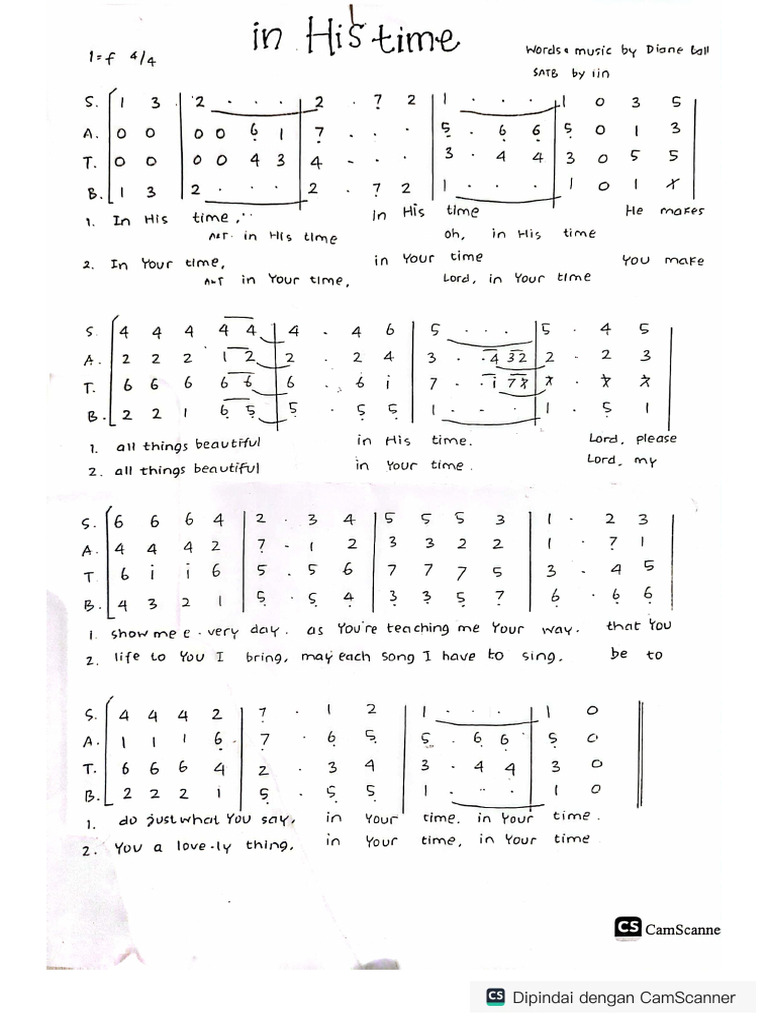 in His time
1=f 4/4
Words & music by Diane Ball
SATB by iin
S. 1 3 | 2 . . . | 2 . 7̣ 2 | 1 . . . | 1 0 3 5 |
A. 0 0 | 0 0 6̣ 1 | 7̣ . . . | 5̣ . 6̣ 6̣ | 5̣ 0 1 3 |
T. 0 0 | 0 0 4 3 | 4 . . . | 3 . 4 4 | 3 0 5 5 |
B. 1 3 | 2 . . . | 2 . 7̣ 2 | 1 . . . | 1 0 1
1. In His time, in His time He makes
ALT. in His time oh, in His time
2. In Your time, in Your time You make
ALT in Your time, Lord, in Your time
S. 4 4 4 4 4 | 4 . 4 6 | 5 . . . | 5 . 4 5 |
A. 2 2 2 1 2 | 2 . 2 4 | 3 . . 4 3 2 | 2 . 2 3 |
T. 6 6 6 6 6 | 6 . 6 i | 7 . . i 7
B. 2 2 1 6̣ 5̣ | 5̣ . 5̣ 5̣ | 1 . . . | 1 . 5̣ 1 |
1. all things beautiful in His time. Lord, please
2. all things beautiful in Your time. Lord, my
S. 6 6 6 4 | 2 . 3 4 | 5 5 5 3 | 1 . 2 3 |
A. 4 4 4 2 | 7̣ . 1 2 | 3 3 2 2 | 1 . 7̣ 1 |
T 6 i i 6 | 5 . 5 6 | 7 7 7 5 | 3 . 4 5 |
B. 4 3 2 1 | 5̣ . 5̣ 4̣ | 3̣ 3̣ 5̣ 7̣ | 6̣ . 6̣ 6̣ |
1. show me e - very day. as You're teaching me Your way. that You
2. life to You I bring, may each song I have to sing, be to
S. 4 4 4 2 | 7̣ . 1 2 | 1 . . . | 1 0 ||
A. 1 1 1 6̣ | 7̣ . 6̣ 5̣ | 5̣ . 6̣ 6̣ | 5̣ 0 ||
T. 6 6 6 4 | 2 . 3 4 | 3 . 4 4 | 3 0 ||
B. 2 2 2 1 | 5̣ . 5̣ 5̣ | 1 . . . | 1 0 ||
1. do just what You say, in Your time. in Your time.
2. You a love-ly thing, in Your time, in Your time
CS CamScanne
CS Dipindai dengan CamScanner